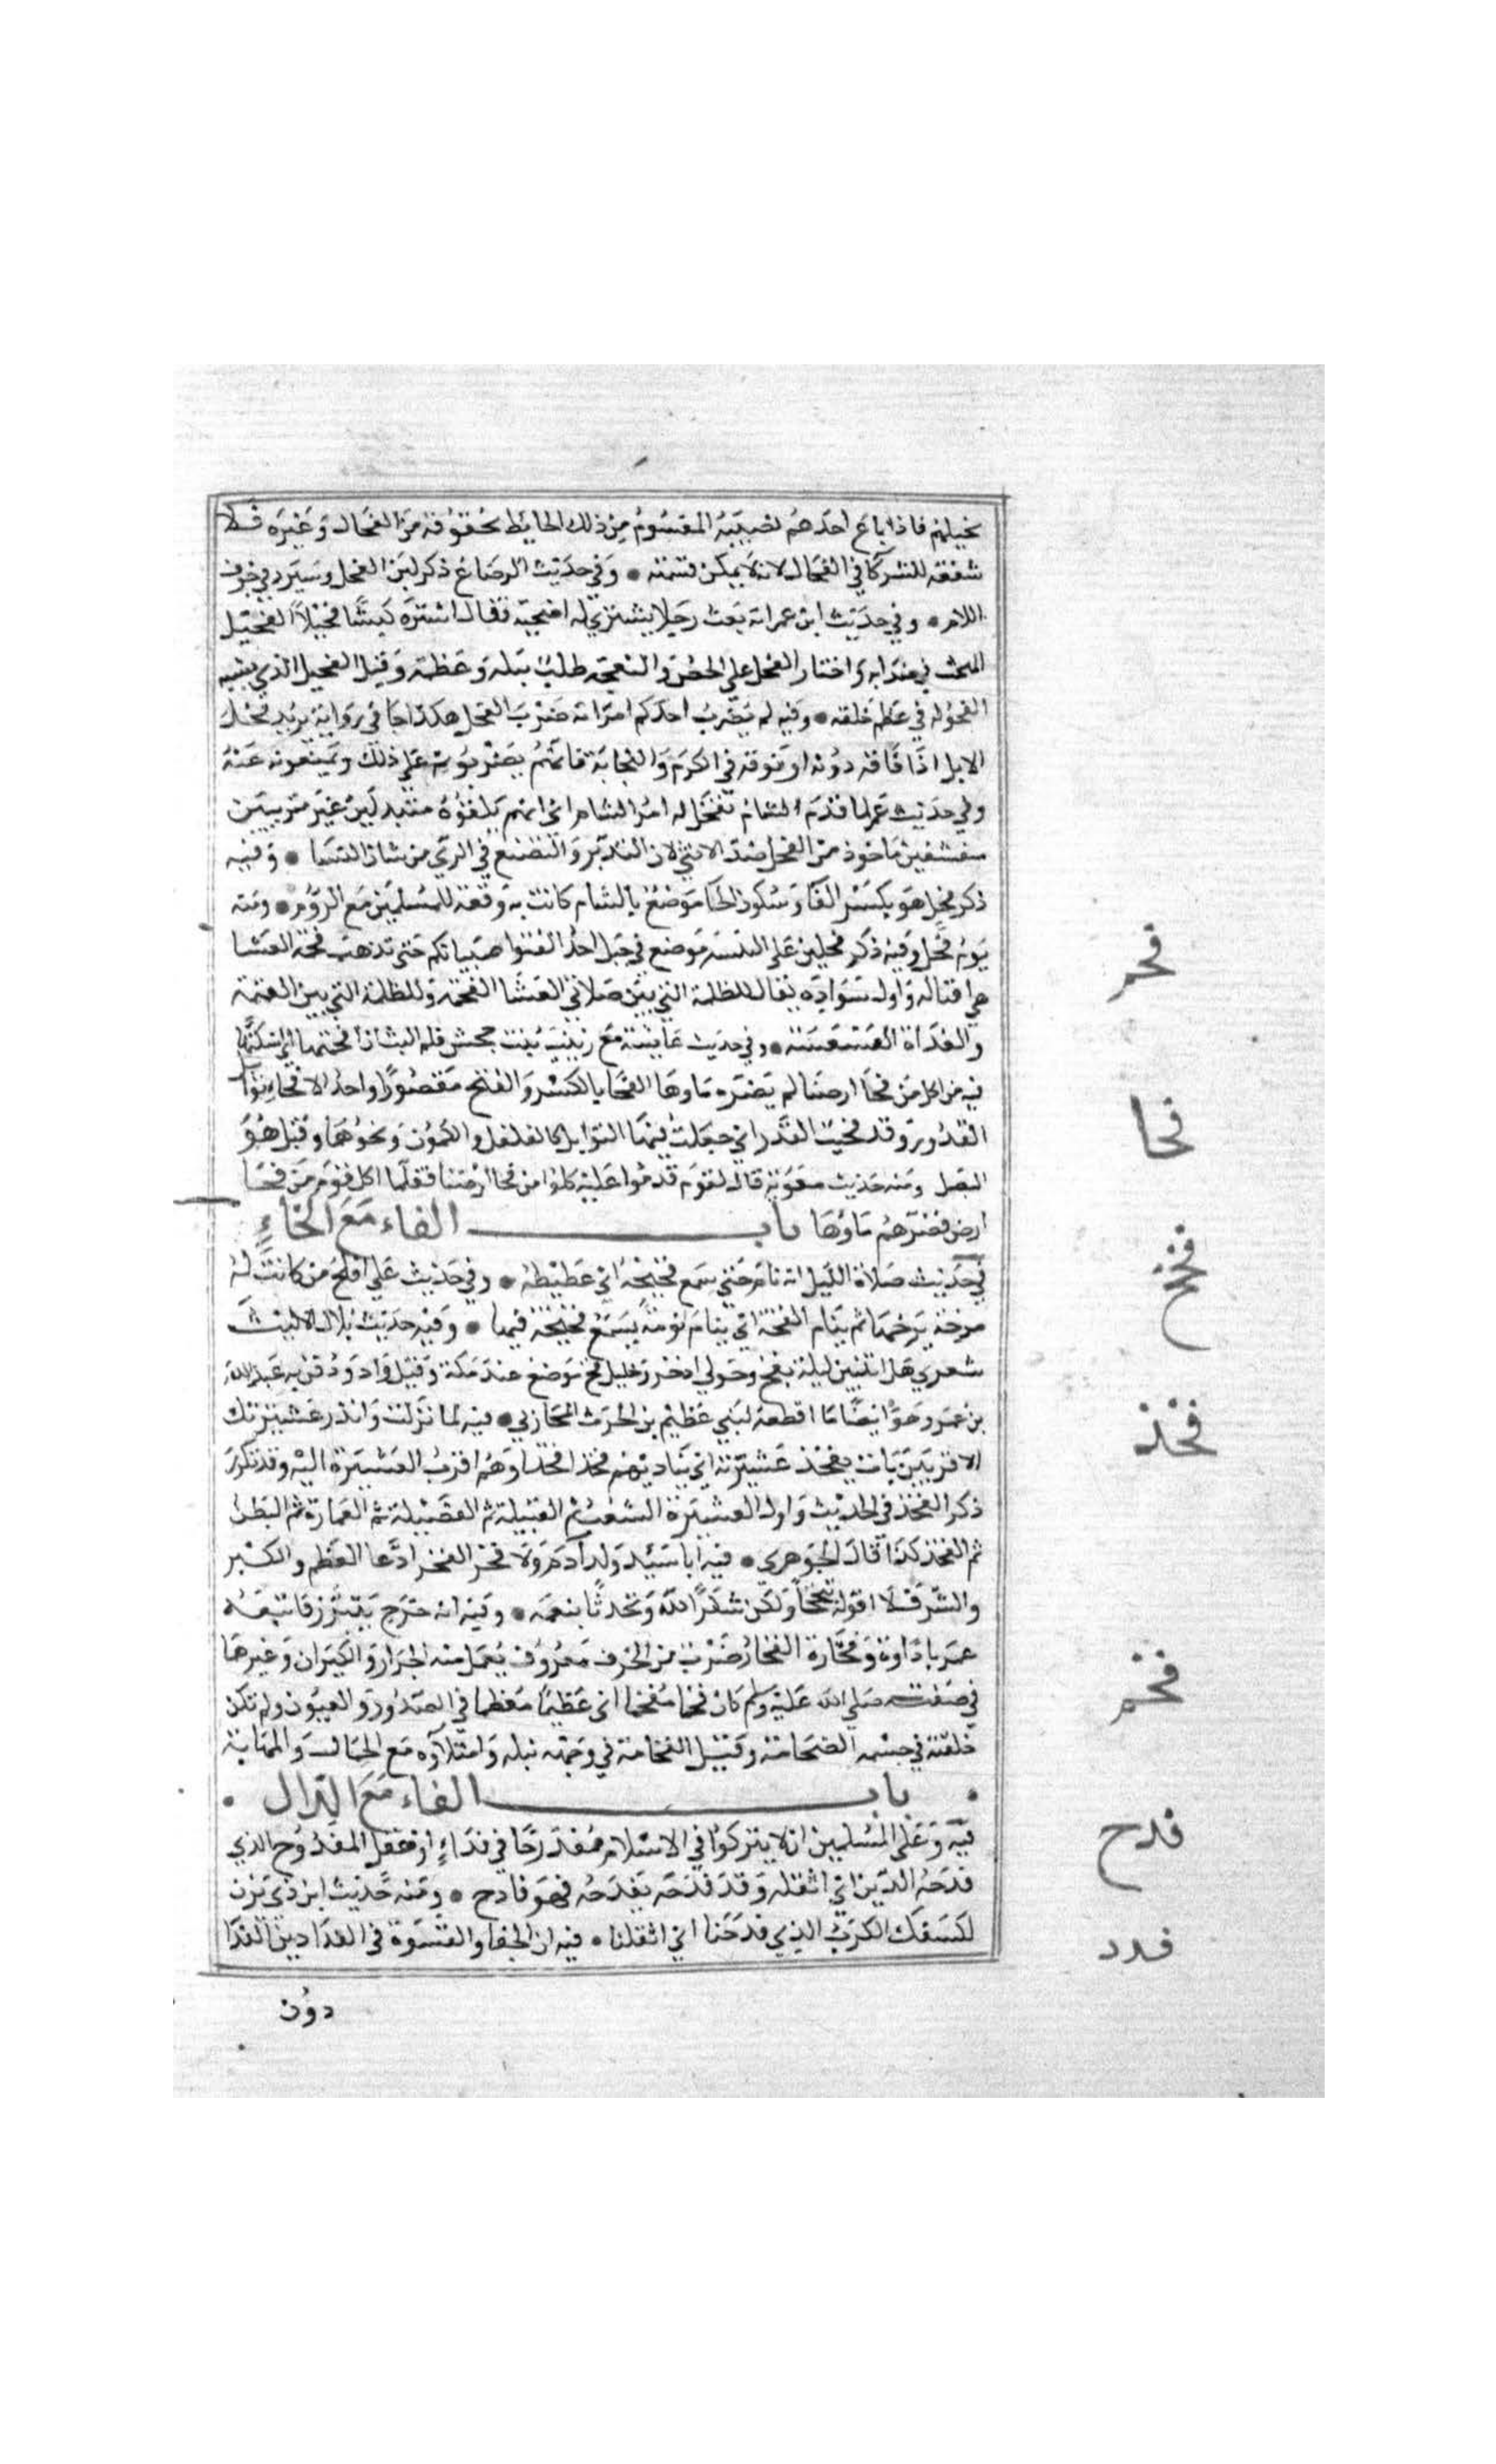 نخيلهم فاذا باع احدهم نصيبه المقسوم من ذلك الحايط بحقوقه من الفحال وغيره فلا
شفعة للشركا في الفحال لانه لا يمكن قسمته • وفي حديث الرضاع ذكر لبن الفحل وسيرد في حرف
اللام • وفي حديث ابن عمر انه بعث رجلا يشتري له اضحية فقال اشتره كبشا فحيلا الفحيل
المنجب في ضرابه واختار الفحل على الخصي والنعجة طلب نبله وعظمه وقيل الفحيل الذي يشبه
الفحولة في عظم خلقه • وفيه لم يضرب احدكم امراته ضرب الفحل هكذا جا في رواية يريد فحل
الابل اذا علا ناقة دونه او فوقه في الكرم والنجابة فانهم يضربونه على ذلك ويمنعونه عنه
وفي حديث عمر لما قدم الشام تفحل له امرا الشام اي انهم تلقوه متبذلين غير متزينين
متقشفين ماخوذ من الفحل ضد الانثى لان التدبر والتصنع في الزي من شان النسا • وفيه
ذكر فحل هو بكسر الفا وسكون الحا موضع بالشام كانت به وقعة للمسلمين مع الروم • ومنه
يوم فحل وفيه ذكر فحلين على التثنية موضع في جبل احد اكفتوا صبيانكم حتى تذهب فحمة العشا
هي اقباله واول سواده يقال للظلمة التي بين صلاتي العشا الفحمة وللظلمة التي بين العتمة
والغداة العسعسة • وفي حديث عايشة مع زينب بنت جحش فلم البث ان افحمتها اي اسكتها
فيه من اكل من فحا ارضنا لم يضره ماوها الفحا بالكسر والفتح مقصورا واحد الافحا توابل
القدور وقد فحيت القدر اي جعلت فيها التوابل كالفلفل والكمون ونحوهما وقيل هو
البصل ومنه حديث معوية قال لقوم قدموا عليه كلوا من فحا ارضنا فقلما اكل قوم من فحا
ارض فضرهم ماوها باب الفاء مع الخاء
في حديث صلاة الليل انه نام حتى سمع فخيخه اي غطيطه • وفي حديث علي افلح من كانت له
مزخة يزخها ثم ينام الفخة اي ينام نومة يسمع فخيخه فيها • وفيه حديث بلال الا ليت
شعري هل ابيتن ليلة بفخ وحولي اذخر وجليل فخ موضع عند مكة وقيل واد ودفن به عبد الله
بن عمر وهو ايضا ما اقطعه لبني عظيم بن الحرث المحازبي • فيه لما نزلت وانذر عشيرتك
الاقربين بات يفخذ عشيرته اي يناديهم فخذا فخذا وهم اقرب العشيرة اليه وقد تكرر
ذكر الفخذ في الحديث واول العشيرة الشعب ثم القبيلة ثم الفصيلة ثم العمارة ثم البطن
ثم الفخذ كذا قال الجوهري • فيه انا سيد ولد آدم ولا فخر الفخر ادعا العظم والكبر
والشرف لا اقوله تبجحا ولكن شكرا لله وتحدثا بنعمه • وفيه انه خرج يتبرز فاتبعه
عمر باداوة وفخارة الفخار ضرب من الخزف معروف يعمل منه الجرار والكيزان وغيرها
في صفته صلى الله عليه وسلم كان فخما مفخما اي عظيما معظما في الصدور والعيون ولم تكن
خلقته في جسمه الضخامة وقيل الفخامة في وجهه نبله وامتلاوه مع الجمال والمهابة
• باب الفاء مع الدال •
فيه وعلى المسلمين ان لا يتركوا في الاسلام مفدرحا في فداء او عقل المفدوح الذي
فدحه الدين اي اثقله وقد فدحه يفدحه فهو فادح • ومنه حديث ابن ذي يزن
لكشفك الكرب الذي فدحنا اي اثقلنا • فيه ان الجفا والقسوة في الفدادين الفدا
دون
فحم
فحا
فخخ
فخذ
فخم
فدح
فدد